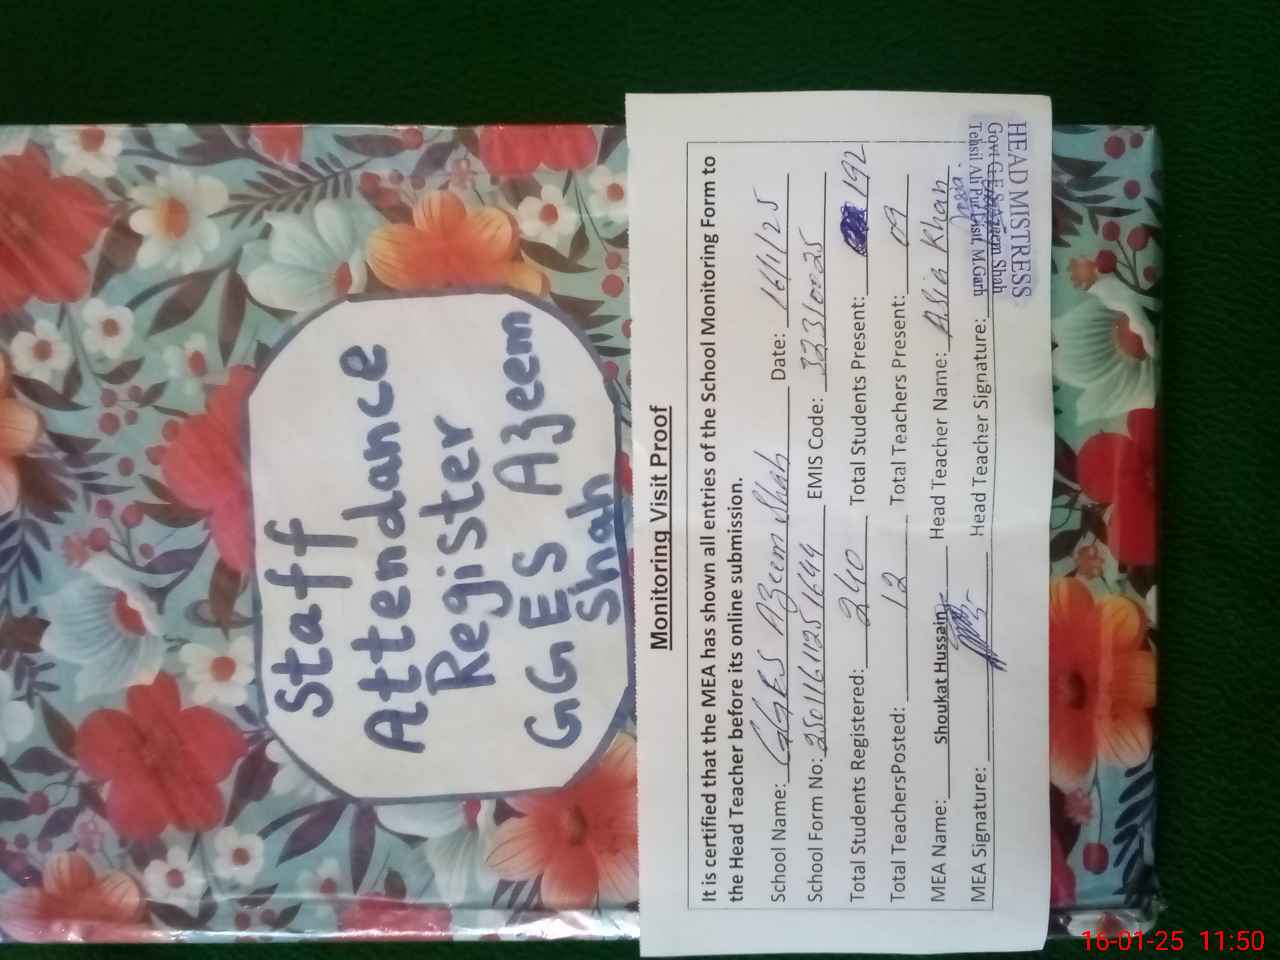 Staff
Attendance
Register
GGES Azeem
Shah
Monitoring Visit Proof
It is certified that the MEA has shown all entries of the School Monitoring Form to
the Head Teacher before its online submission.
School Name: GGES Azeem Shah Date: 16/1/25
School Form No: 2501161125 1644 EMIS Code: 32310025
Total Students Registered: 240 Total Students Present: 192
Total TeachersPosted: 12 Total Teachers Present: 09
MEA Name: Shoukat Hussain Head Teacher Name: Asia Khan
MEA Signature: Head Teacher Signature:
HEAD MISTRESS
Govt G.E.S Azeem Shah
Tehsil Ali Pur Distt. M.Garh
16-01-25 11:50